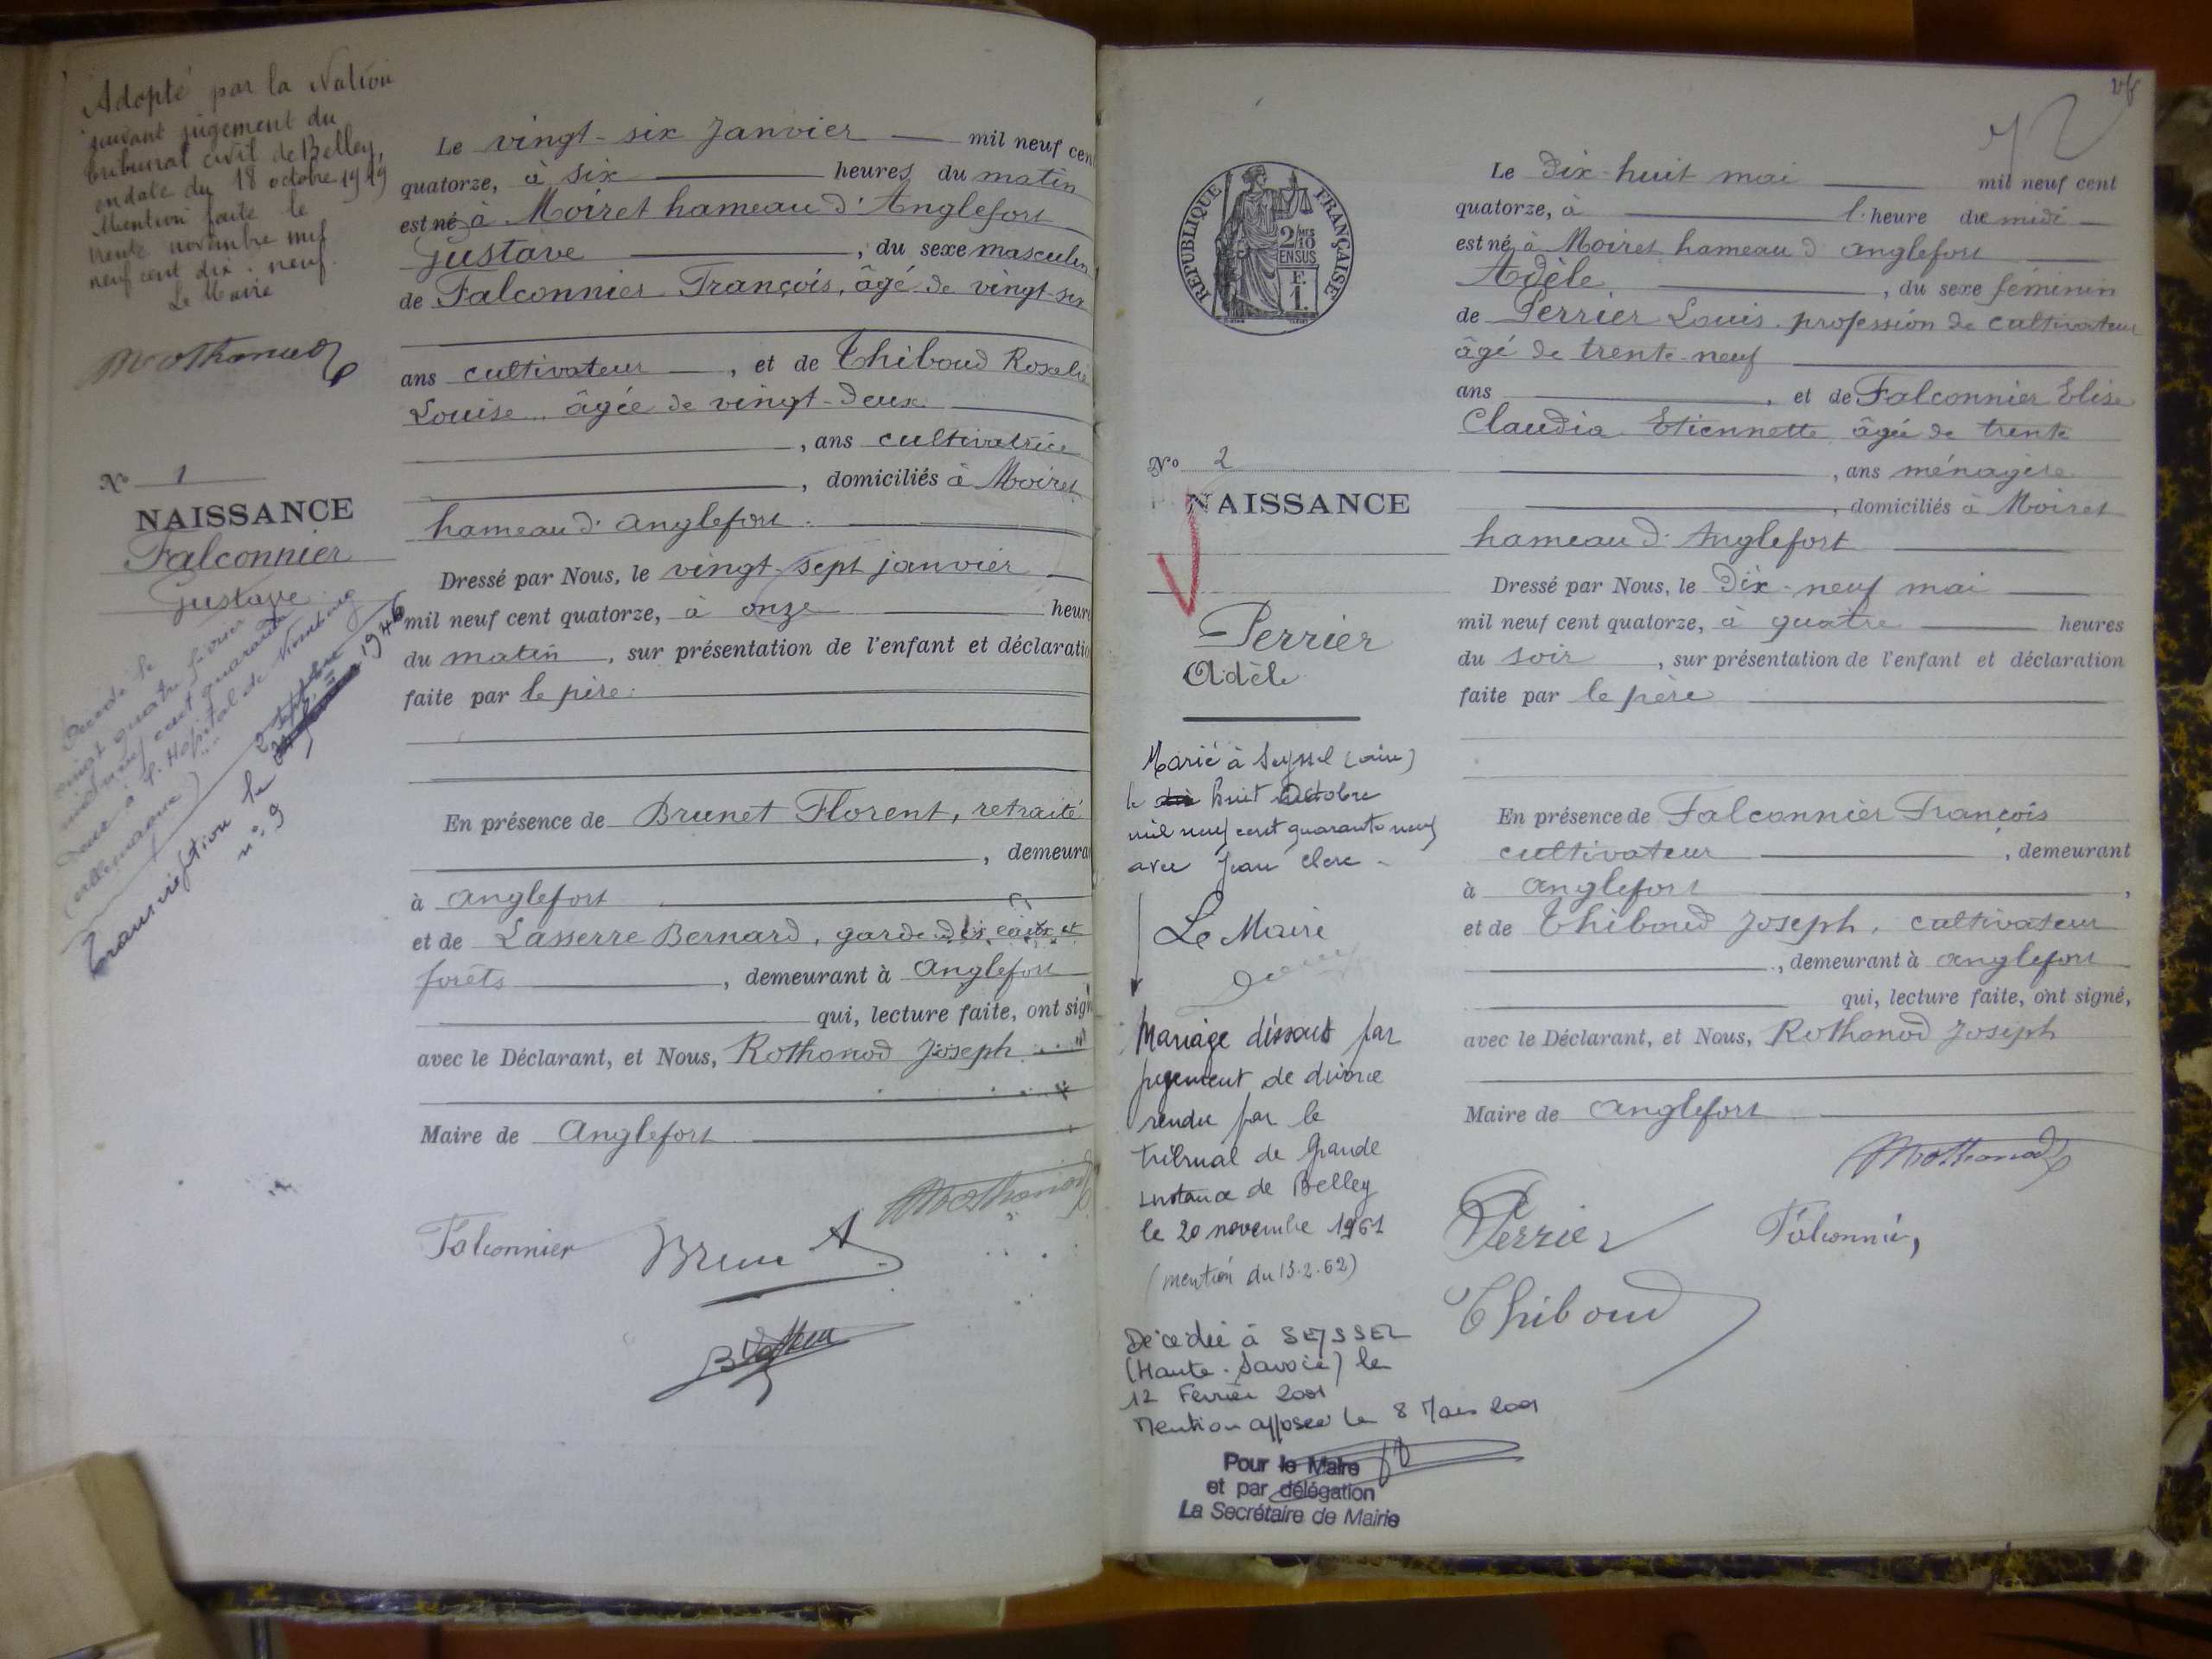 Adopté par la Nation
suivant jugement du
tribunal civil de Belley,
en date du 18 octobre 1919
Mention faite le
trente novembre mil
neuf cent dix-neuf.
Le Maire
Rothonod
Le vingt-six Janvier mil neuf cen
quatorze, à six heures du matin
est né à Moiret hameau d'Anglefort
Gustave, du sexe masculin
de Falconnier François, âgé de vingt-six
ans cultivateur, et de Thiboud Rosalie
Louise âgée de vingt-deux
, ans cultivatrice
, domiciliés à Moiret
hameau d'Anglefort.
Nº 1
NAISSANCE
Falconnier
Gustave
Dressé par Nous, le vingt-sept janvier
mil neuf cent quatorze, à onze heure
du matin, sur présentation de l'enfant et déclaratio
faite par le père.
Décédé le
vingt quatre février
mil neuf cent quarante
à l'Hôpital de Nürnberg
(allemagne)
Transcription le 2 septembre 1946
nº 9
En présence de Brunet Florent, retraité
, demeura
à Anglefort
et de Lasserre Bernard, garde des eaux et
forêts, demeurant à Anglefort
qui, lecture faite, ont sign
avec le Déclarant, et Nous, Rothonod Joseph
Maire de Anglefort
Rothonod
Falconnier Brunet
B Lasserre
RÉPUBLIQUE FRANÇAISE
2/10 MES
EN SUS
F.
1.
Le Dix-huit mai mil neuf cent
quatorze, à l'heure du midi
est né à Moiret hameau d'Anglefort
Adèle, du sexe féminin
de Perrier Louis profession de cultivateur
âgé de trente-neuf
ans, et de Falconnier Elise
Claudia Etiennette âgée de trente
, ans ménagère
, domiciliés à Moiret
hameau d'Anglefort
Nº 2
NAISSANCE
Perrier
Adèle
Dressé par Nous, le Dix-neuf mai
mil neuf cent quatorze, à quatre heures
du soir, sur présentation de l'enfant et déclaration
faite par le père
Marié à Seyssel (ain)
le huit Octobre
mil neuf cent quarante neuf
avec Jean Clerc
Le Maire
En présence de Falconnier François
cultivateur, demeurant
à Anglefort,
et de Thiboud Joseph, cultivateur
, demeurant à Anglefort
qui, lecture faite, ont signé,
avec le Déclarant, et Nous, Rothonod Joseph
Maire de Anglefort
Rothonod
Perrier Falconnier
Thiboud
Mariage dissout par
jugement de divorce
rendu par le
tribunal de Grande
instance de Belley
le 20 novembre 1961
(mention du 13.2.62)
Décédée à SEYSSEL
(Haute-Savoie) le
12 Février 2001
Mention apposée le 8 Mars 2001
Pour le Maire
et par délégation
La Secrétaire de Mairie